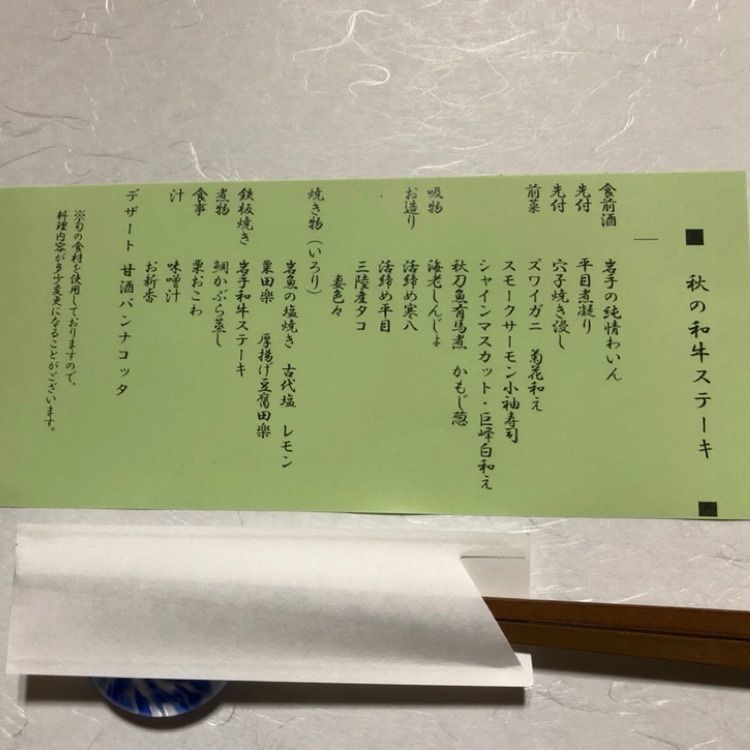 秋の和牛ステーキ
食前酒 岩手の純情わいん
先付 平目煮凝り
先付 穴子焼き浸し
前菜 ズワイガニ 菊花和え
スモークサーモン小袖寿司
シャインマスカット・巨峰白和え
秋刀魚有馬煮 かもじ葱
吸物 海老しんじょ
お造り 活締め寒八
活締め平目
三陸産タコ
妻色々
焼き物(いろり)
岩魚の塩焼き 古代塩 レモン
粟田楽 厚揚げ豆腐田楽
鉄板焼き 岩手和牛ステーキ
煮物 鯛かぶら蒸し
食事 栗おこわ
汁 味噌汁
お新香
デザート 甘酒パンナコッタ
※旬の食材を使用しておりますので、
料理内容が多少変更になることがございます。